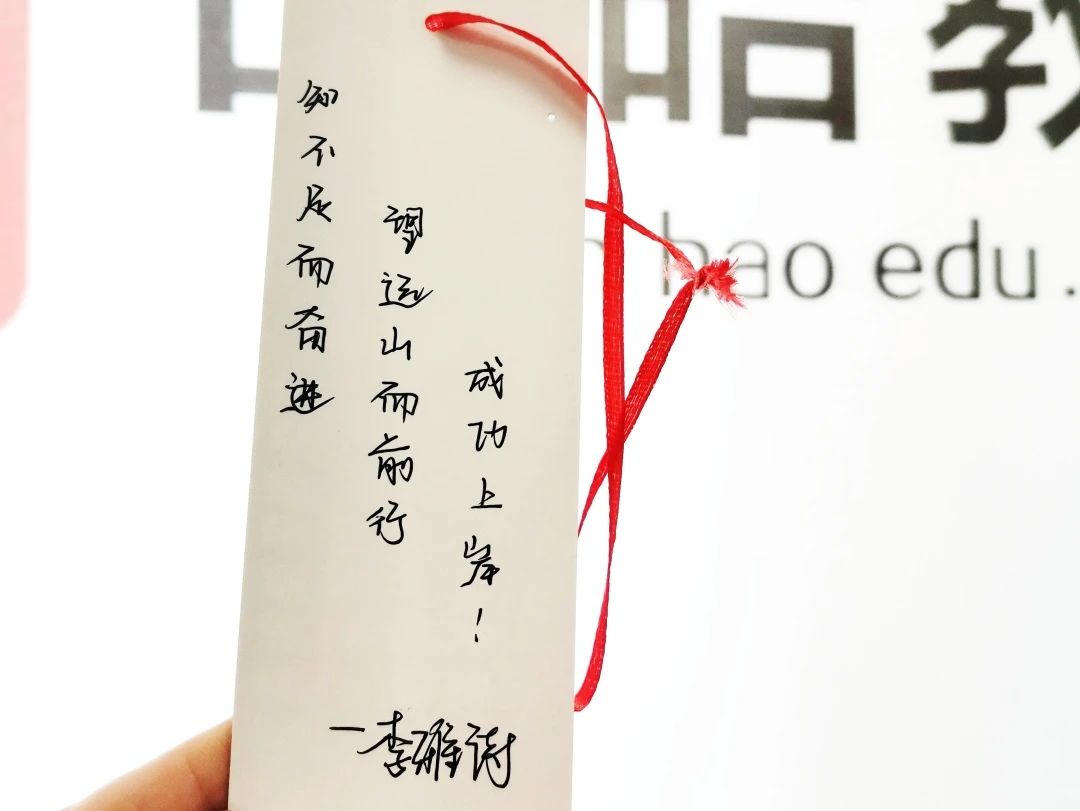 知不足而奋进
望远山而前行
成功上岸！
—李雅诗
教
hao edu.